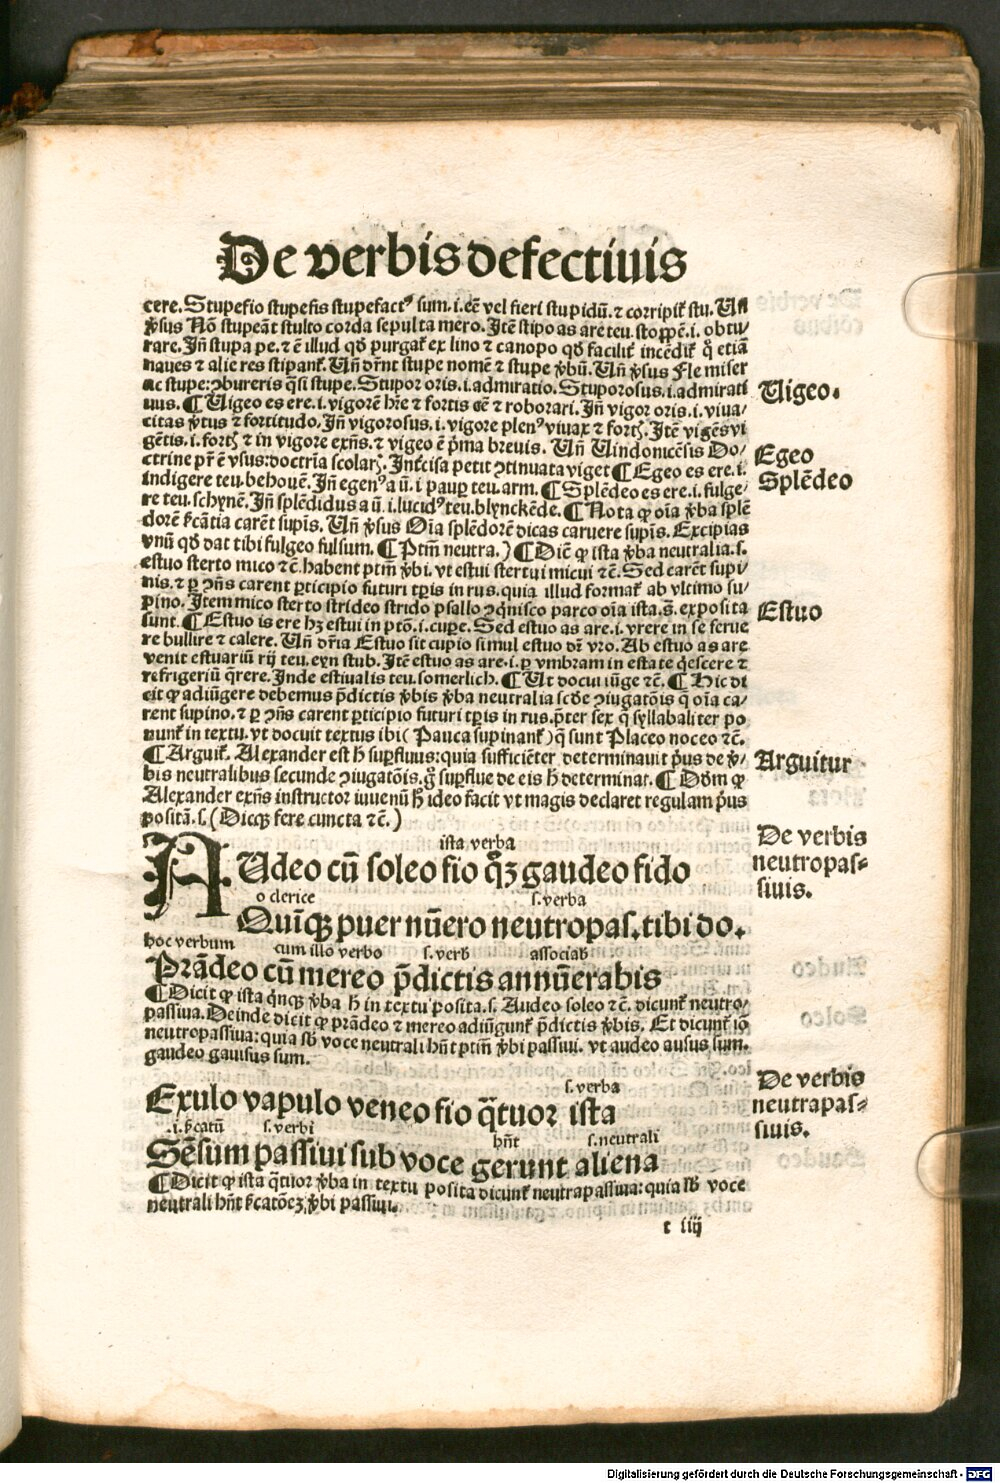 De verbis defectiuis
cere. Stupefio stupefis stupefactꝰ sum. i. eē vel fieri stupidū. ⁊ corripit̄ stu. Uñ
v̓sus Nō stupeāt stulto corda sepulta mero. Itē stipo as are teu. stoppē. i. obtu⸗
rare. Jñ stupa pe. ⁊ ē illud qđ purgat̄ ex lino ⁊ canopo qđ facilit̄ incēdit̄ q̄ etiā
naues ⁊ alie res stipant̄. Uñ dr̄nt stupe nomē ⁊ stupe v̓bū. Uñ v̓sus Fle miser
ac stupe: ꝯbureris q̄si stupe. Stupor oris. i. admiratio. Stuporosus. i. admirati
uus. ¶ Uigeo es ere. i. vigorē hr̄e ⁊ fortis eē ⁊ roborari. Jñ vigor oris. i. viua⸗
citas v̓tus ⁊ fortitudo. Jñ vigorosus. i. vigore plenꝰ viuax ⁊ fort̄. Itē vigēs vi
gētis. i. fort̄ ⁊ in vigore exñs. ⁊ vigeo ē p̄ma breuis. Uñ Uindonicēsis Do⸗
ctrine pr̄ ē vsus: doctrīa scolar̄. Int̄cisa petit ꝯtinuata viget ¶ Egeo es ere. i.
indigere teu. behouē. Jñ egenꝰ a ū. i. paup̱ teu. arm. ¶ Splēdeo es ere. i. fulge⸗
re teu. schynē. Jñ splēdidus a ū. i. lucidꝰ teu. blynckēde. ¶ Nota ꝙ oīa v̓ba splē
dorē sc̄atia carēt supīs. Uñ v̓sus Oīa splēdorē dicas caruere supīs. Excipias
vnū qđ dat tibi fulgeo fulsum. ¶ Ptm̄ neutra.) ¶ Dic̄ ꝙ ista v̓ba neutralia. s.
estuo sterto mico ⁊c̄. habent ptm̄ v̓bi. vt estui stertui micui ⁊c̄. Sed carēt supi⸗
nis. ⁊ p̱ ꝯñs carent p̱ticipio futuri tp̄is in rus. quia illud format̄ ab vltimo su⸗
pino. Item mico sterto strideo strido psallo ꝯq̄nisco parco oīa ista. s̄. exposita
sunt. ¶ Estuo is ere hꝫ estui in ptō. i. cup̱e. Sed estuo as are. i. vrere in se ferue
re bullire ⁊ calere. Uñ dr̄ia Estuo sit cupio simul estuo dr̄ vro. Ab estuo as are
venit estuariū rij teu. eyn stub. Itē estuo as are. i. p̱ vmbram in estate q̄escere ⁊
refrigeriū q̄rere. Inde estiualis teu. somerlich. ¶ Ut docui iūge ⁊c̄. ¶ Hic di
cit ꝙ adiūgere debemus p̄dictis v̓bis v̓ba neutralia sc̄de ꝯiugatōis q̄ oīa ca⸗
rent supino. ⁊ p̱ ꝯñs carent p̱ticipio futuri tp̄is in rus. p̄ter sex q̄ syllabaliter po
nunt̄ in textu. vt docuit textus ibi (Pauca supinant̄) q̄ sunt Placeo noceo ⁊c̄.
¶ Arguit̄. Alexander est h̄ sup̱fluus: quia sufficiēter determinauit p̓us de v̓⸗
bis neutralibus secunde ꝯiugatōis. g̊ sup̱flue de eis h̄ determinat̄. ¶ Dd̄m ꝙ
Alexander exñs instructor iuuenū h̄ ideo facit vt magis declaret regulam p̓us
positā. s. (Dicqꝫ fere cuncta ⁊c̄.)
ista verba
AUdeo cū soleo fio q̊qꝫ gaudeo fido
o clerice s. verba
Quīqꝫ puer nūero neutropas. tibi do.
hoc verbum cum illo verbo s. verb associab
Prādeo cū mereo p̄dictis annūerabis
¶ Dicit ꝙ ista q̄nqꝫ v̓ba h̄ in textu posita. s. Audeo soleo ⁊c̄. dicunt̄ neutro⸗
passiua. Deinde dicit ꝙ prādeo ⁊ mereo adiūgunt̄ p̄dictis v̓bis. Et dicunt̄ iō
neutropassiua: quia sb̄ voce neutrali hn̄t ptm̄ v̓bi passiui. vt audeo ausus sum.
gaudeo gauisus sum.
s. verba
Exulo vapulo veneo fio q̄tuor ista
.i. sc̄atū s. verbi hn̄t s. neutrali
Sēsum passiui sub voce gerunt aliena
¶ Dicit ꝙ ista q̄tuor v̓ba in textu posita dicunt̄ neutrapassiua: quia sb̄ voce
neutrali hn̄t sc̄atōeꝫ v̓bi passiui.
t iiij
Uigeo.
Egeo
Splēdeo
Estuo
Arguitur
De verbis
neutropas⸗
siuis.
De verbis
neutrapas⸗
siuis.
Digitalisierung gefördert durch die Deutsche Forschungsgemeinschaft - DFG